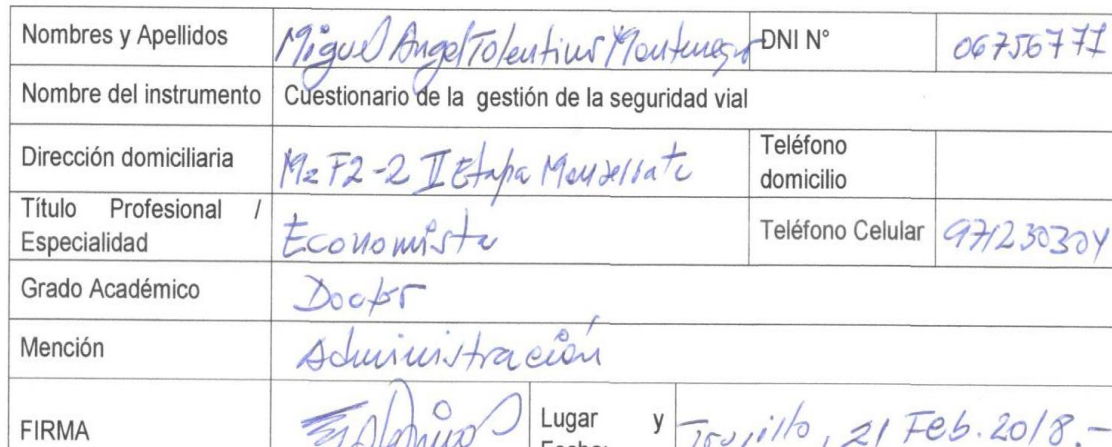 Nombres y Apellidos Miguel Angel Tolentino Montenegro DNI N° 06756771
Nombre del instrumento Cuestionario de la gestión de la seguridad vial
Dirección domiciliaria Mz F2-2 II Etapa Monserrate Teléfono
domicilio
Título Profesional /
Especialidad Economista Teléfono Celular 971230304
Grado Académico Doctor
Mención Administración
FIRMA Lugar y
Fecha: Trujillo, 21 Feb. 2018.-